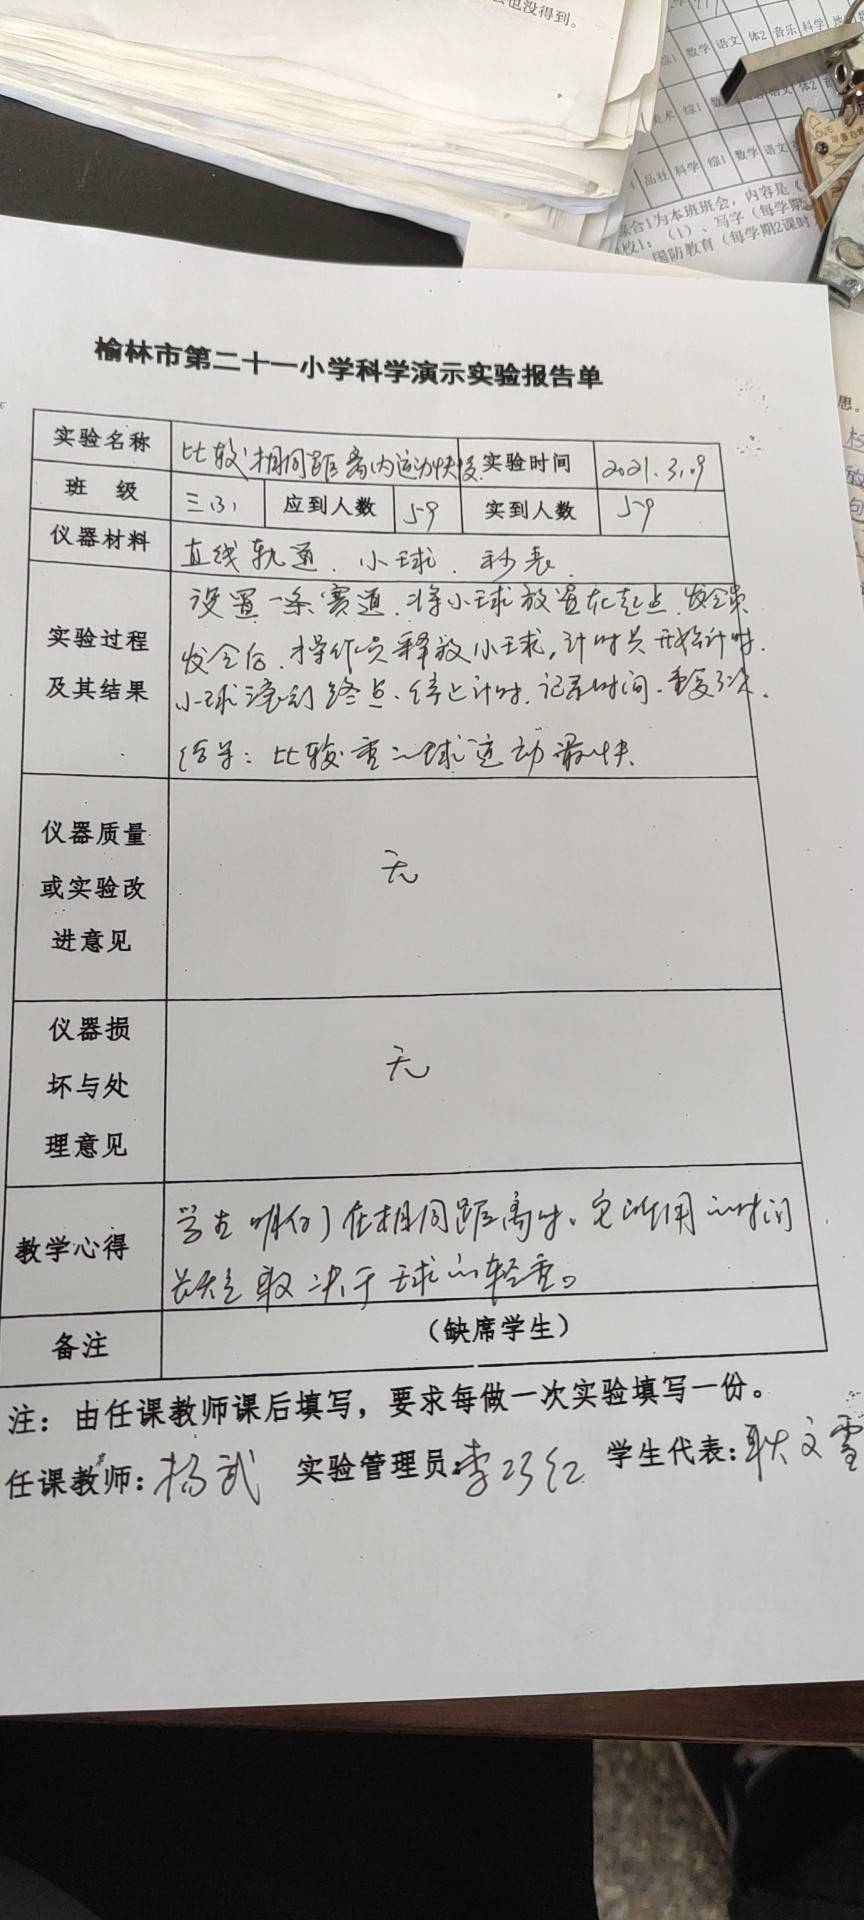 也没得到。
数学 语文 体2 音乐 科学
品社 科学 综1 数学 语文
综合1为本班班会，内容是（
校1：（1）、写字（每学期
国防教育（每学期2课时
思。
榆林市第二十一小学科学演示实验报告单
实验名称 比较相同距离内运动快慢 实验时间 2021.3.9
班 级 三(3) 应到人数 59 实到人数 59
仪器材料 直线轨道、小球、秒表.
实验过程及其结果
设置一条赛道.将小球放置在起点.发令员
发令后.操作员释放小球,计时员开始计时.
小球滚到终点.停止计时.记录时间.重复3次.
结果：比较重的球运动最快.
仪器质量
或实验改
进意见
无
仪器损
坏与处
理意见
无
教学心得
学生明白了在相同距离时。它所用的时间
长短取决于球的轻重。
备注 （缺席学生）
注：由任课教师课后填写，要求每做一次实验填写一份。
任课教师：杨武 实验管理员：李巧红 学生代表：耿文雪